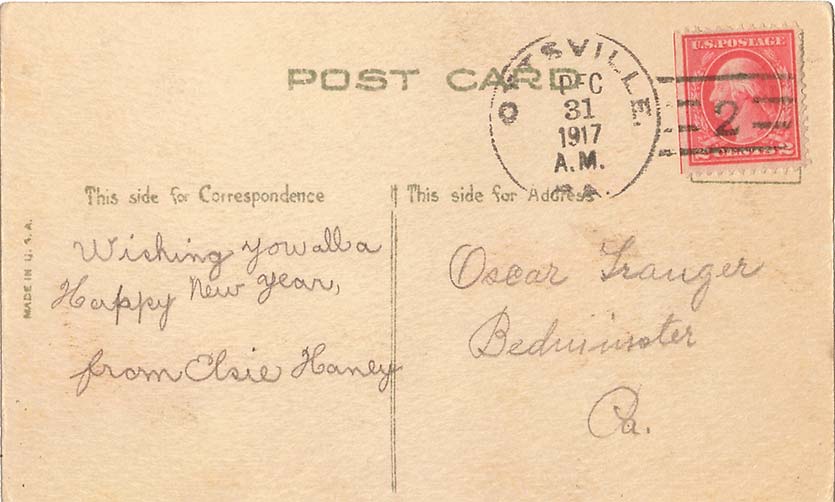 POST CARD
OTTSVILLE.
DEC
31
1917
A.M.
PA.
U.S.POSTAGE
2
2 CENTS 2
This side for Correspondence
This side for Address
MADE IN U.S.A.
Wishing you all a
Happy New Year,
from Elsie Haney
Oscar Tranger
Bedminster
Pa.